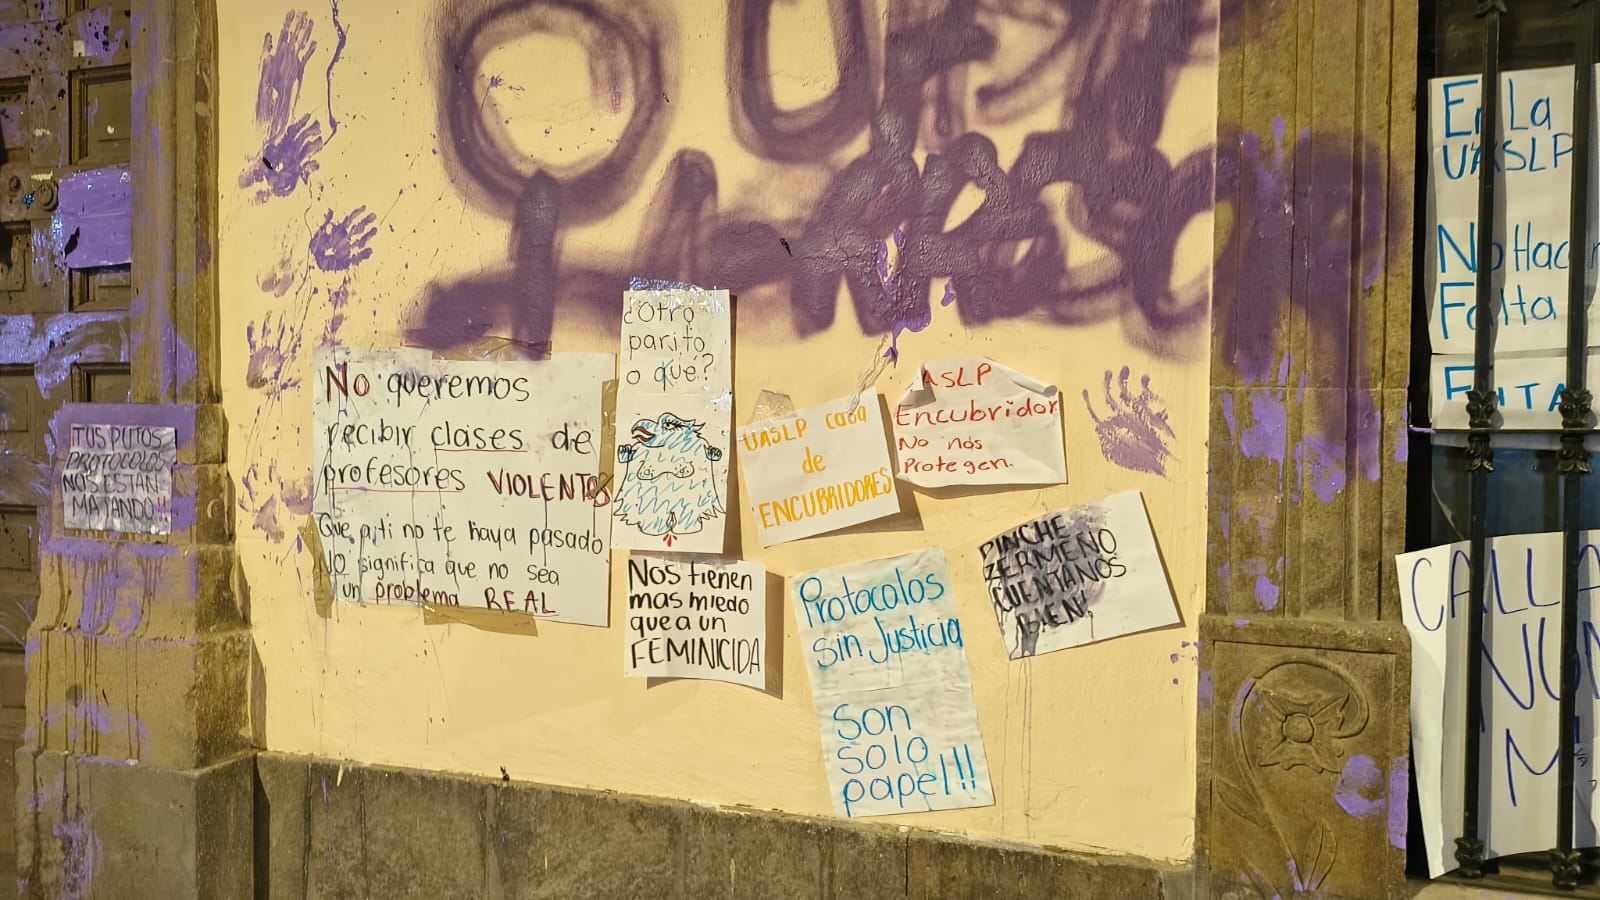 TUS PUTOS
PROTOCOLOS
NOS ESTAN
MATANDO!!
No queremos
recibir clases de
profesores VIOLENTOS
Que a ti no te haya pasado
NO significa que no sea
un problema REAL
¿otro
parito
o qué?
Nos tienen
mas miedo
que a un
FEMINICIDA
UASLP casa
de
ENCUBRIDORES
ASLP
Encubridor
No nos
Protegen.
Protocolos
Sin Justicia
Son
solo
papel!!
PINCHE
ZERMEÑO
CUENTANOS
BIEN!
En La
UASLP
No Hac
Falta
CALLA